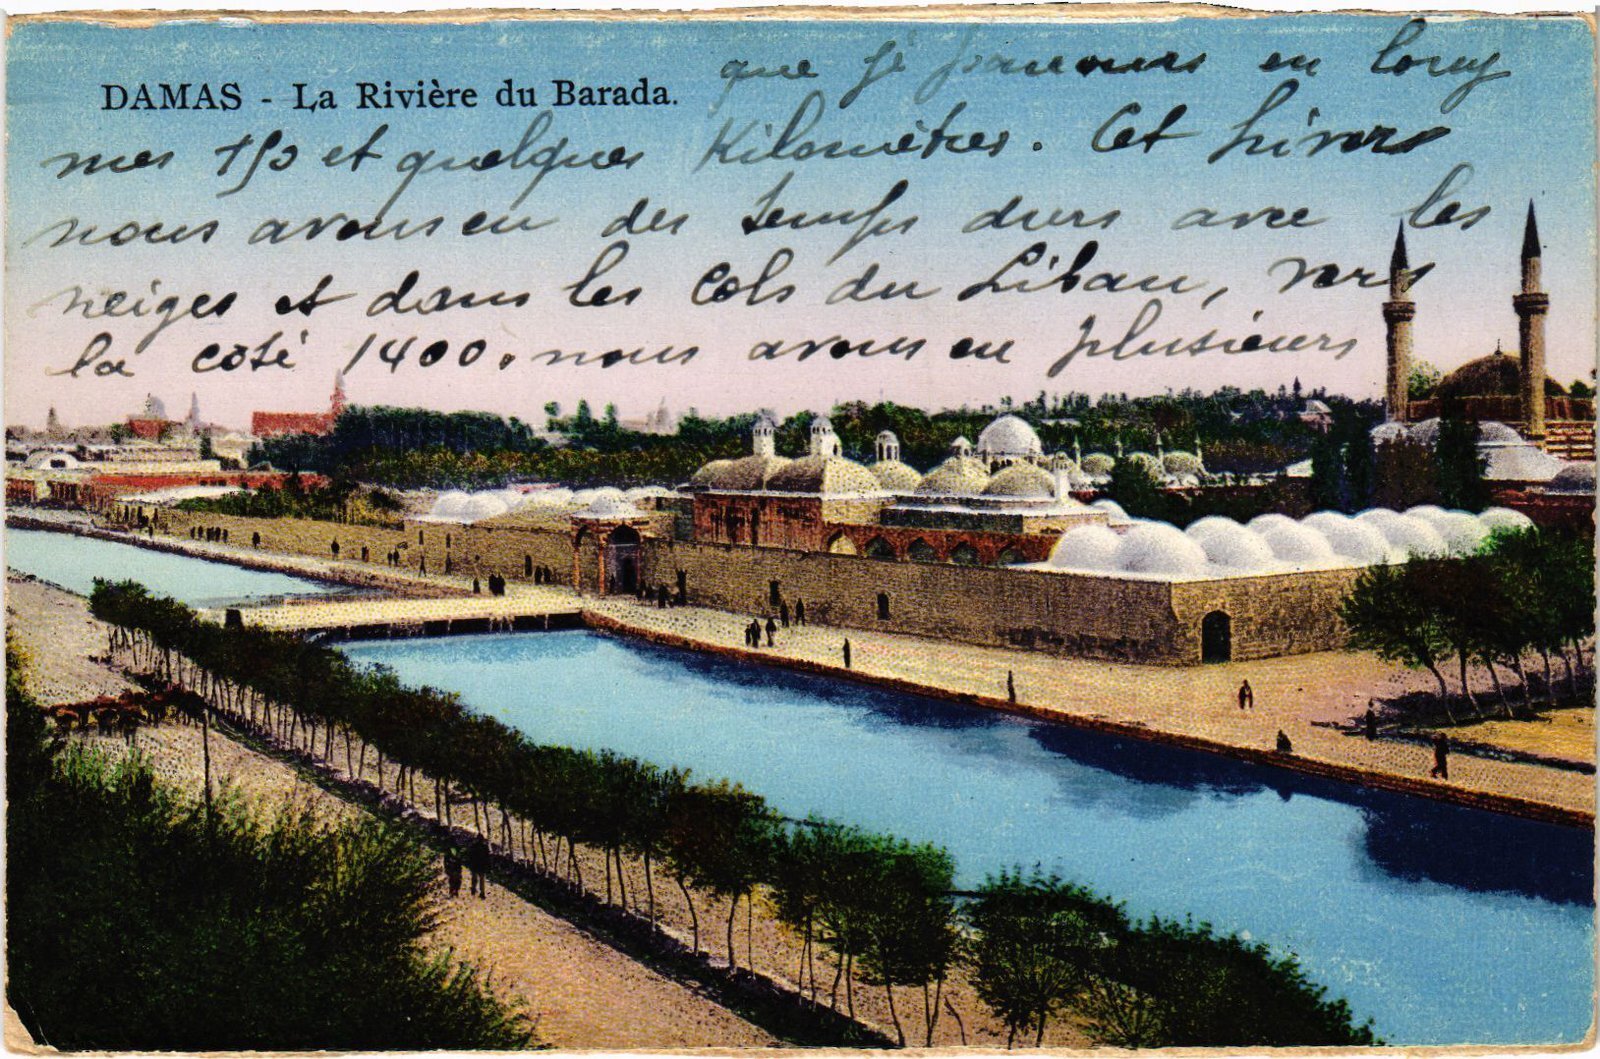 DAMAS - La Rivière du Barada.
que je parcours en
mes 150 et quelques Kilomètres. Cet hivers
nous avons eu des temps durs avec les
neiges et dans les Cols du Liban, vers
la coté 1400. nous avons eu plusieurs